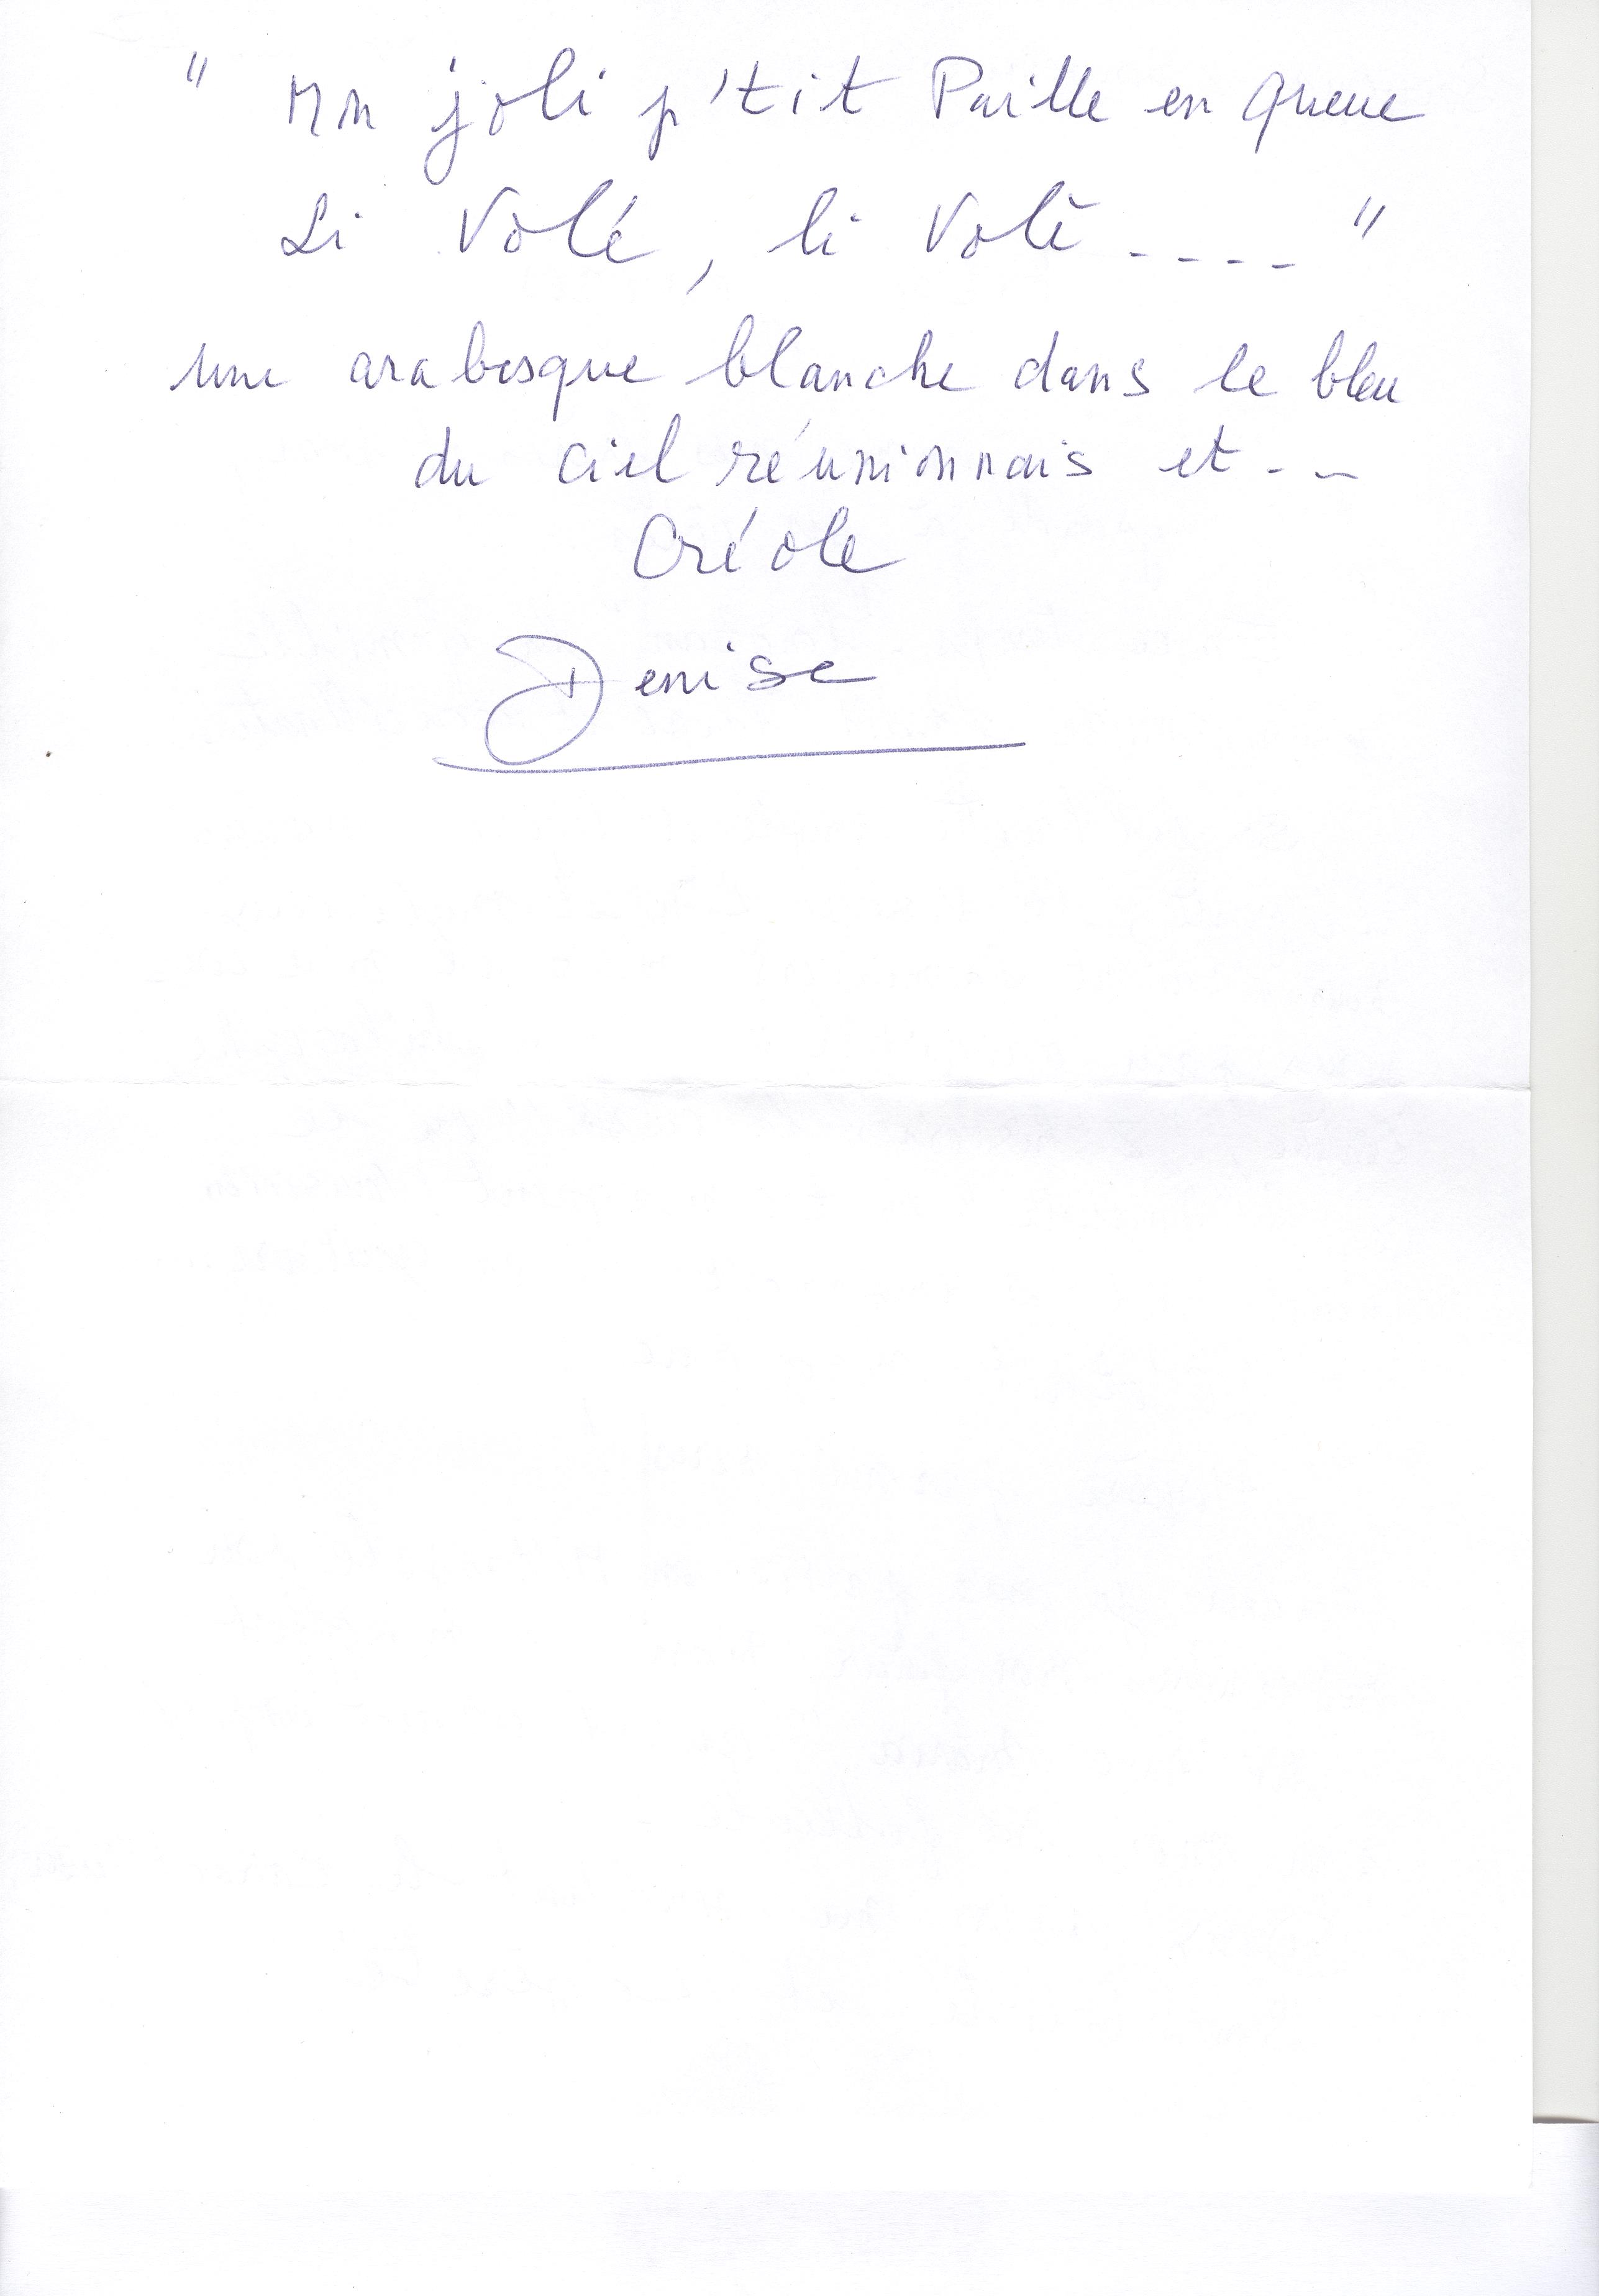 " Mn joli p'tit Paille en queue
Li Volé, li Volé ---- "
une arabesque blanche dans le bleu
du ciel réunionnais et --
Créole
Denise